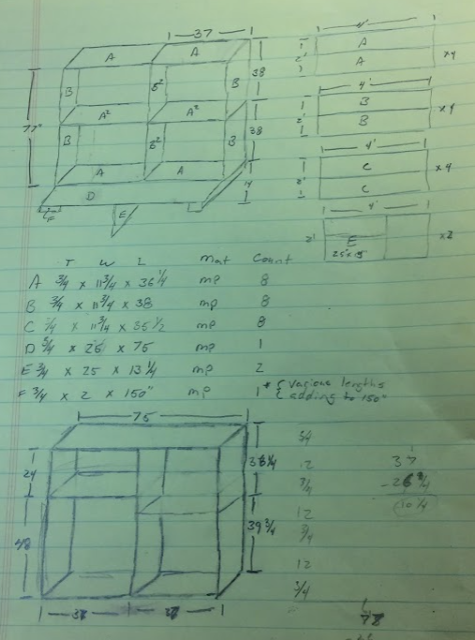 37
A A
B B² B
38
77"
A² A²
B B² B
38
A A
D
E
4'
1' A
2' A
x4
4'
1' B
2' B
x4
4'
1' C
2' C
x4
4'
2' E
25 x 15
x2
T W L Mat Count
A 3/4 x 11 3/4 x 36 1/4 mp 8
B 3/4 x 11 3/4 x 38 mp 8
C 1/4 x 11 3/4 x 35 1/2 mp 8
D 3/4 x 26 x 75 mp 1
E 3/4 x 25 x 13 1/4 mp 2
F 3/4 x 2 x 150" mp 1 * { Variene lengths
{ adding to 150"
75
3/4
24
38 1/4
12
37
3/4
- 26 3/4
12
10 1/4
48
39 3/4
3/4
12
3/4
38 38
78